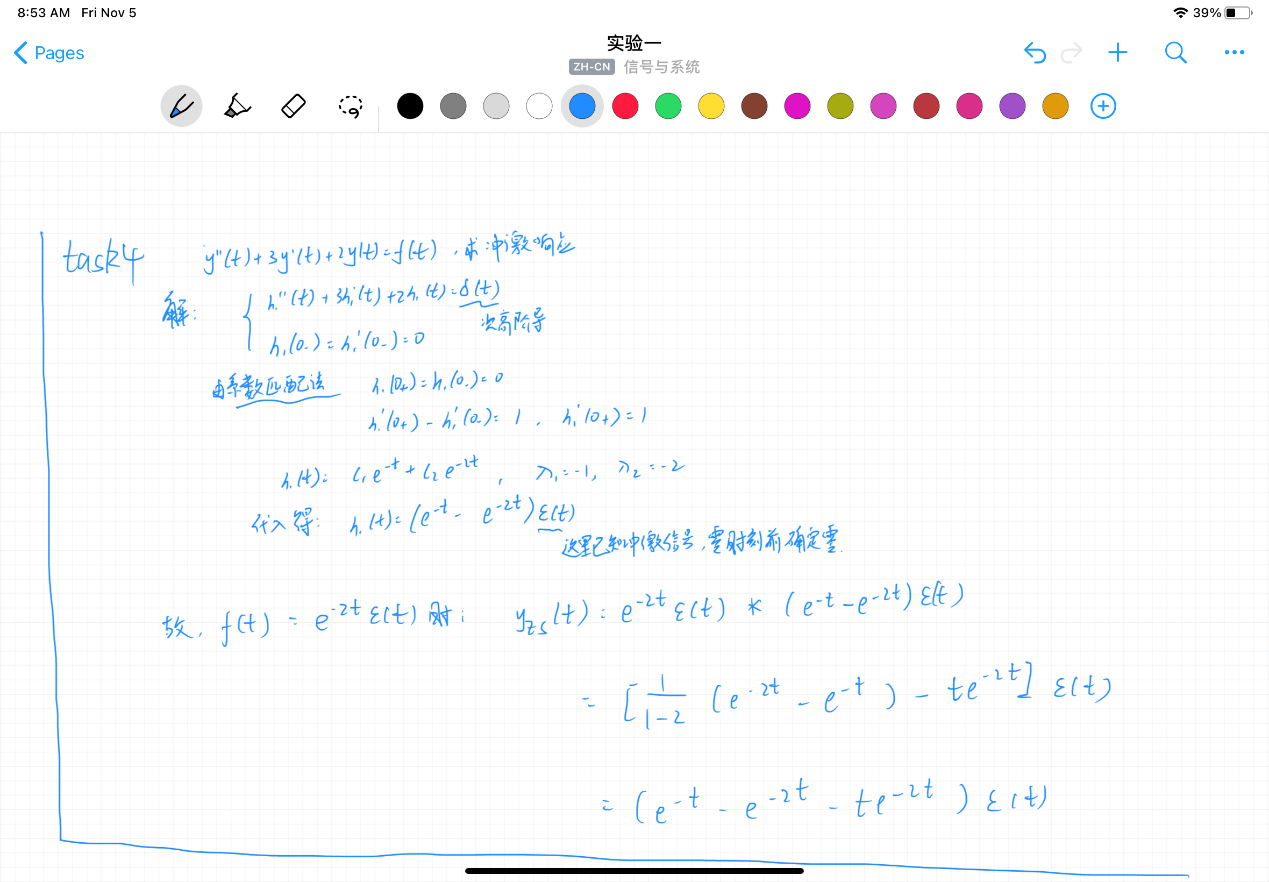 8:53 AM Fri Nov 5 39%
Pages
实验一
ZH-CN 信号与系统
task4 y''(t)+3y'(t)+2y(t)=f(t),求冲激响应
解: h₁''(t)+3h₁'(t)+2h₁(t)=δ(t)
次高阶导
h₁(0-)=h₁'(0-)=0
由系数匹配法 h₁(0+)=h₁(0-)=0
h₁'(0+)-h₁'(0-)=1, h₁'(0+)=1
h₁(t)= C₁e^-t+C₂e^-2t, λ₁=-1, λ₂=-2
代入得: h₁(t)=(e^-t - e^-2t)ε(t)
这里已知冲激信号,零时刻前确定零.
故, f(t) = e^-2t ε(t) 时: yzs(t)= e^-2t ε(t) * (e^-t-e^-2t)ε(t)
= [1/(1-2) (e^-2t - e^-t) - te^-2t] ε(t)
= (e^-t - e^-2t - te^-2t) ε(t)